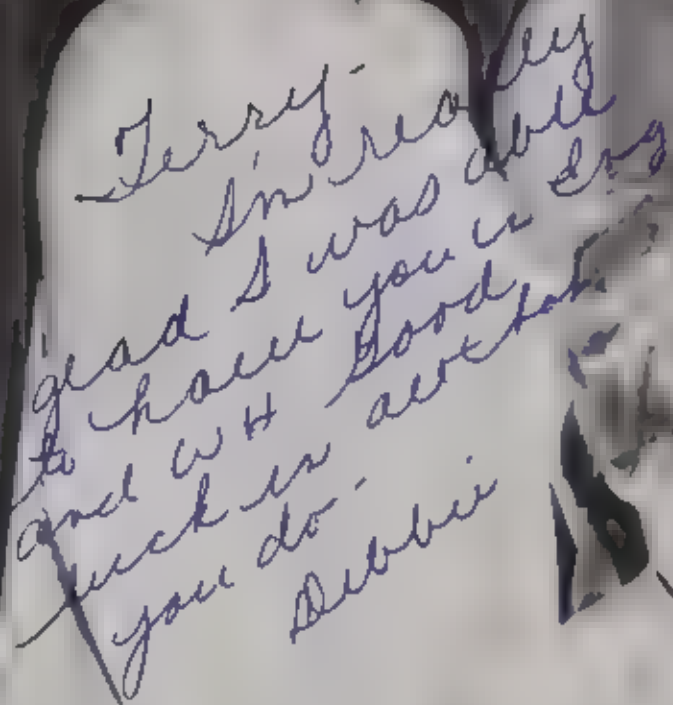 Terry-
I'm really
glad I was able
to have you in Eng
and WH Good
luck in all that
you do.
Debbie